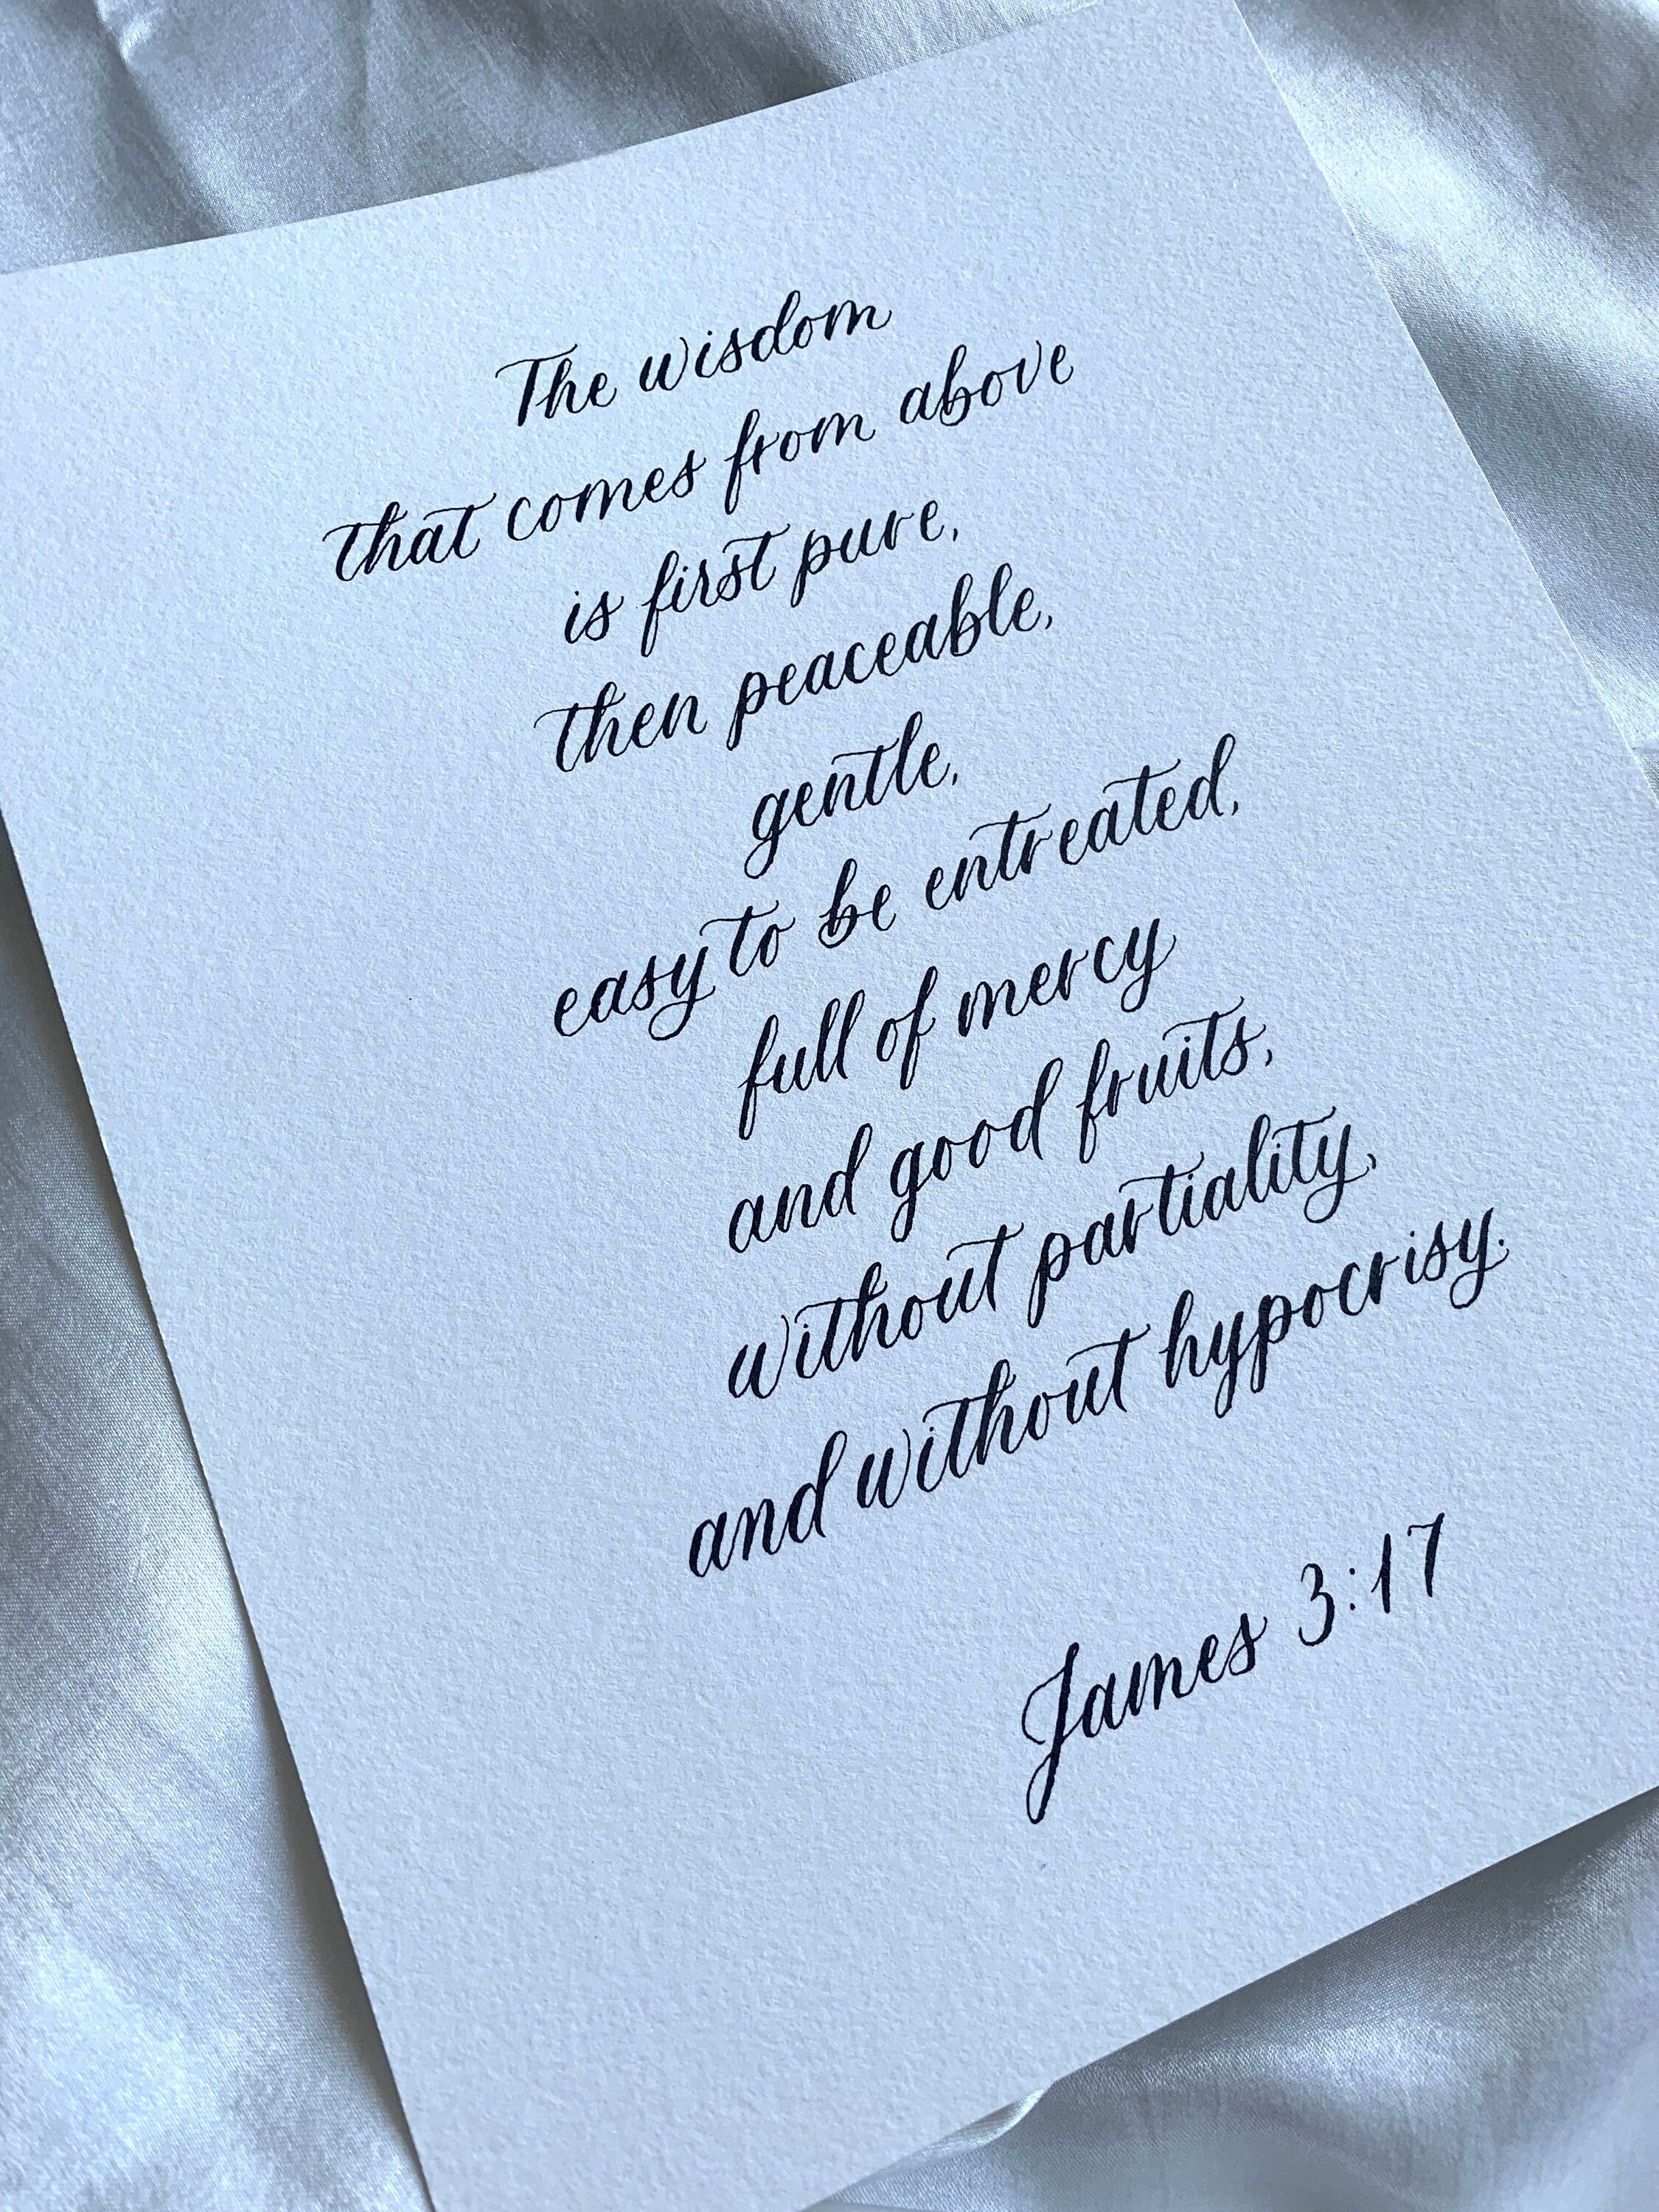 The wisdom
that comes from above
is first pure,
then peaceable,
gentle,
easy to be entreated,
full of mercy
and good fruits,
without partiality,
and without hypocrisy.
James 3:17